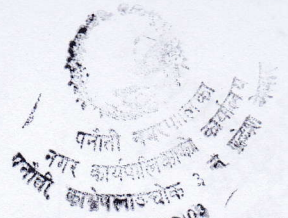 पनौती नगरपालिका
नगर कार्यपालिकाको कार्यालय
पनौती, काभ्रेपलाञ्चोक